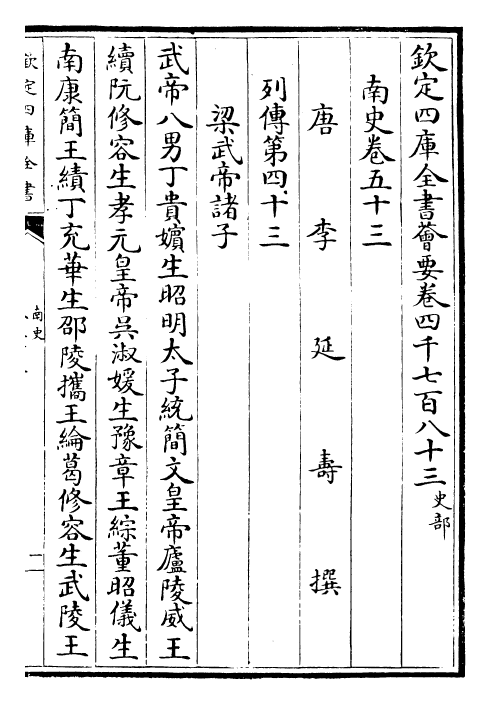 欽定四庫全書薈要卷四千七百八十三史部
南史卷五十三
唐李延壽撰
列傳第四十三
梁武帝諸子
武帝八男丁貴嬪生昭明太子統簡文皇帝廬陵威王
續阮修容生孝元皇帝吳淑媛生豫章王綜董昭儀生
南康簡王績丁充華生邵陵攜王綸葛修容生武陵王
欽定四庫全書
南史